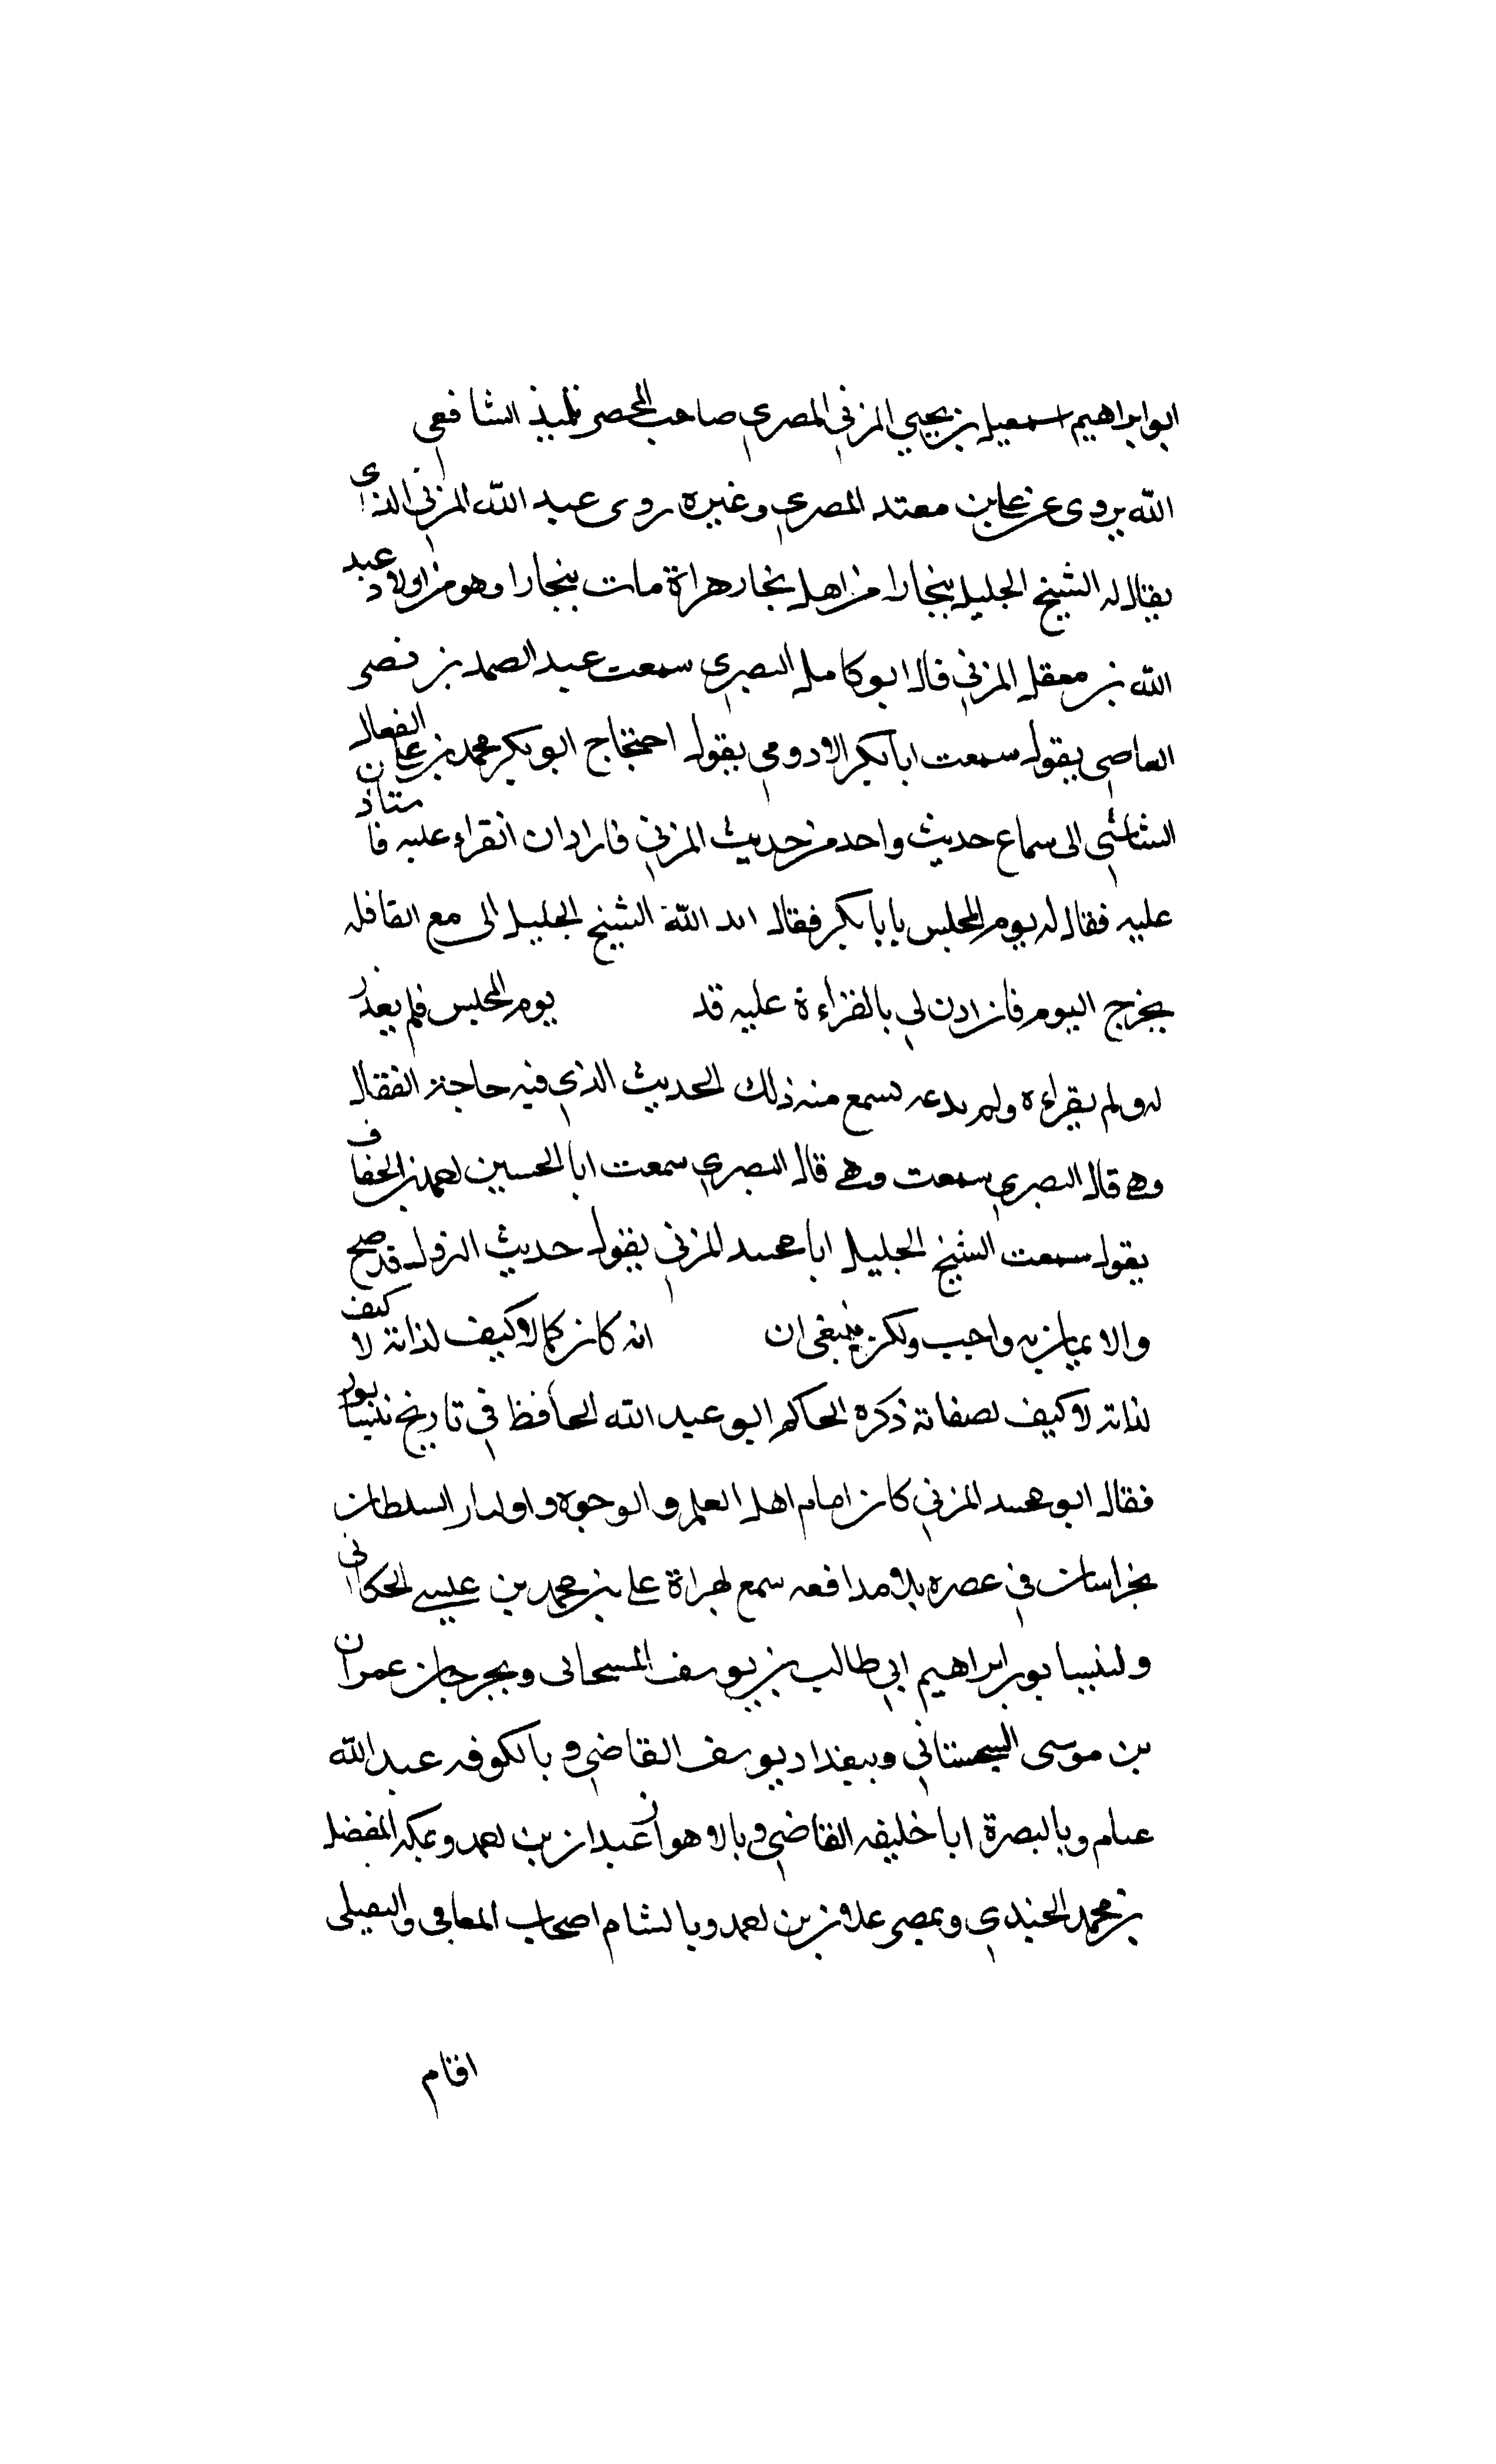 ابو ابراهيم اسمعيل بن يحيي المزني المصري صاحب المختصر تلميذ الشافعي
الله يروي عن علي بن معبد المصري وغيره روى عبد الله المزني الذي
يقال له الشيخ الجليل ببخارا من اهل بخار هراة مات ببخارا وهو من اولاد عبد
الله بن معقل المزني قال ابو كامل البصري سمعت عبد الصمد بن نصر
العاصمي يقول سمعت ابا بكر الاودي يقول احتجاج ابو بكر محمد بن علي القفال
الشاشي الى سماع حديث واحد من حديث المزني فاراد ان انقراء عليه فا ستاذن
عليه فقال له يوم المجلس يا با بكر فقال ايد الله الشيخ الجليل الى مع القافله
يخرج اليوم فان اذن لي بالقراءة عليه قد يوم المجلس فلم يعذر
له ولم يقراءه ولم يدعه يسمع منه ذلك الحديث الذي فيه حاجة القفال
قال البصري سمعت قال البصري سمعت ابا الحسين احمد بن الخفاف
يقول سمعت الشيخ الجليل ابا محمد المزني يقول حديث النزول قد صح
والايمان به واجب ولكن ينبغي ان انه كان كما لا كيف لذاته لا كيف
لذاته لا كيف لصفاته ذكره الحاكم ابو عبد الله الحافظ في تاريخ نيسابور
فقال ابو محمد المزني كان امام اهل العلم والوجوه واوليا السلطان
بخراسان في عصره بلا مدافعه سمع بهراة علي بن محمد بن عيسى الحكاني
ولنيسابور ابراهيم ابي طالب بن يوسف وبجرجان عمران
بن موسى السجستاني وببغداد يوسف القاضي و بالكوفه عبد الله
عنام وبالبصرة ابا خليفه القاضي وبالاهواز عبدان بن احمد وبمكه المفضل
بن محمد الجندي وبمصر علان بن احمد وبالشام اصحاب المعافى والنفيلى
اقام